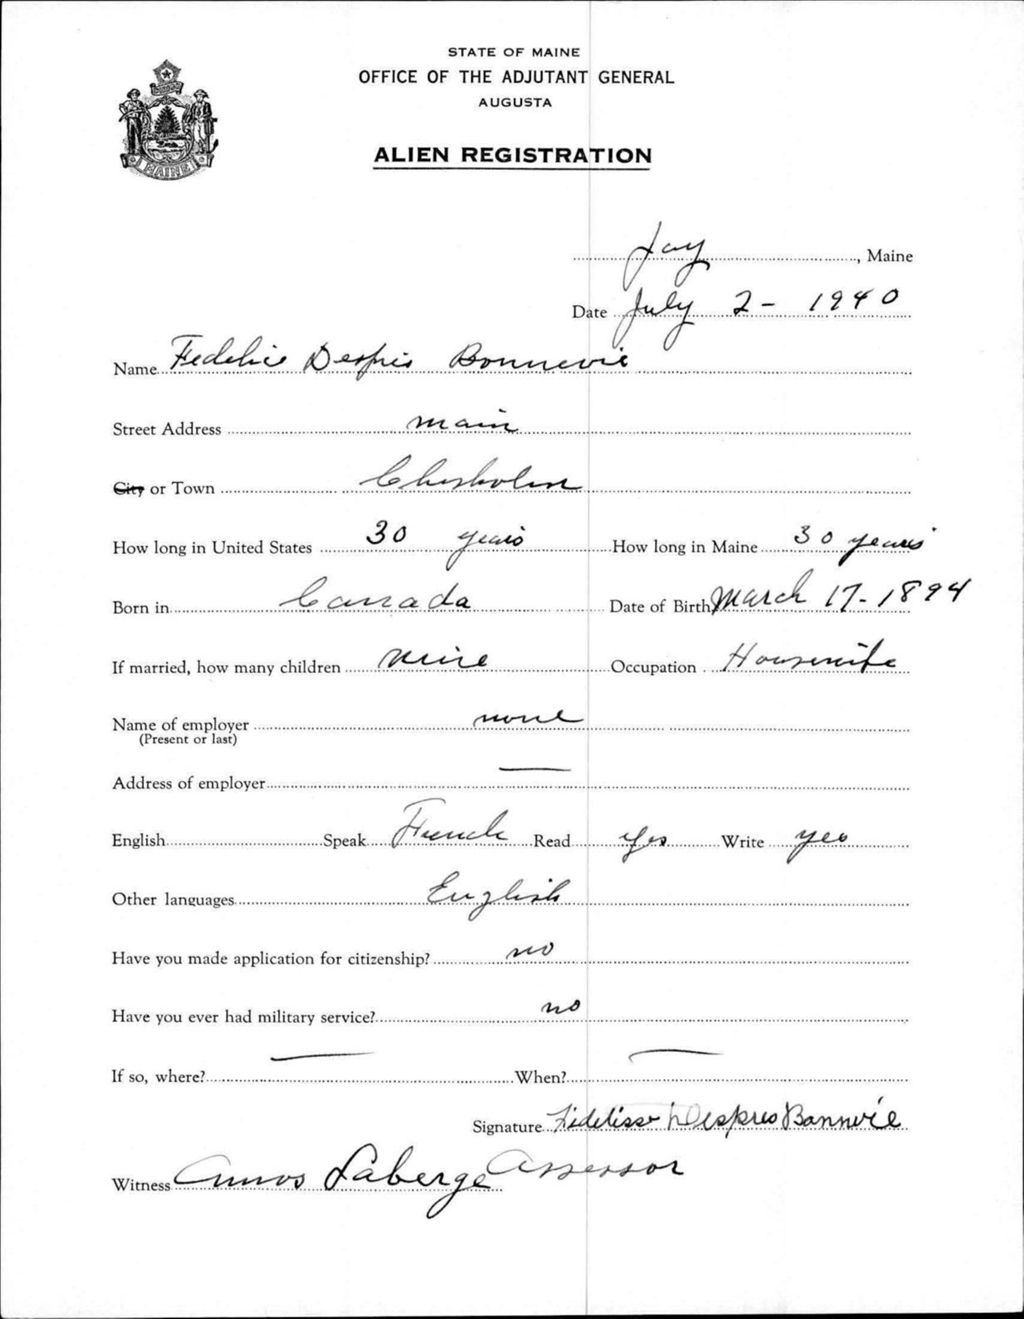 STATE OF MAINE
OFFICE OF THE ADJUTANT GENERAL
AUGUSTA
ALIEN REGISTRATION
MAINE
Jay, Maine
Date July 2 - 1940
Name Fedelic Despris Bonnevie
Street Address main
City or Town Chesholm
How long in United States 30 years How long in Maine 30 years
Born in Canada Date of Birth March 17 - 1894
If married, how many children nine Occupation Housewife
Name of employer none
(Present or last)
Address of employer —
English Speak French Read yes Write yes
Other languages English
Have you made application for citizenship? no
Have you ever had military service? no
If so, where? — When? —
Signature Despres Bonnvie
Witness Amos Laberge Assessor